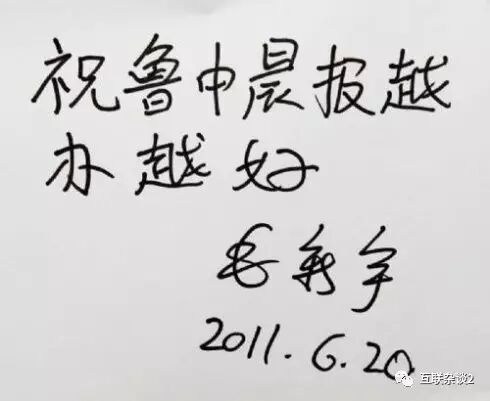 祝鲁中晨报越
办越好
毛新宇
2011.6.20
互联杂谈2